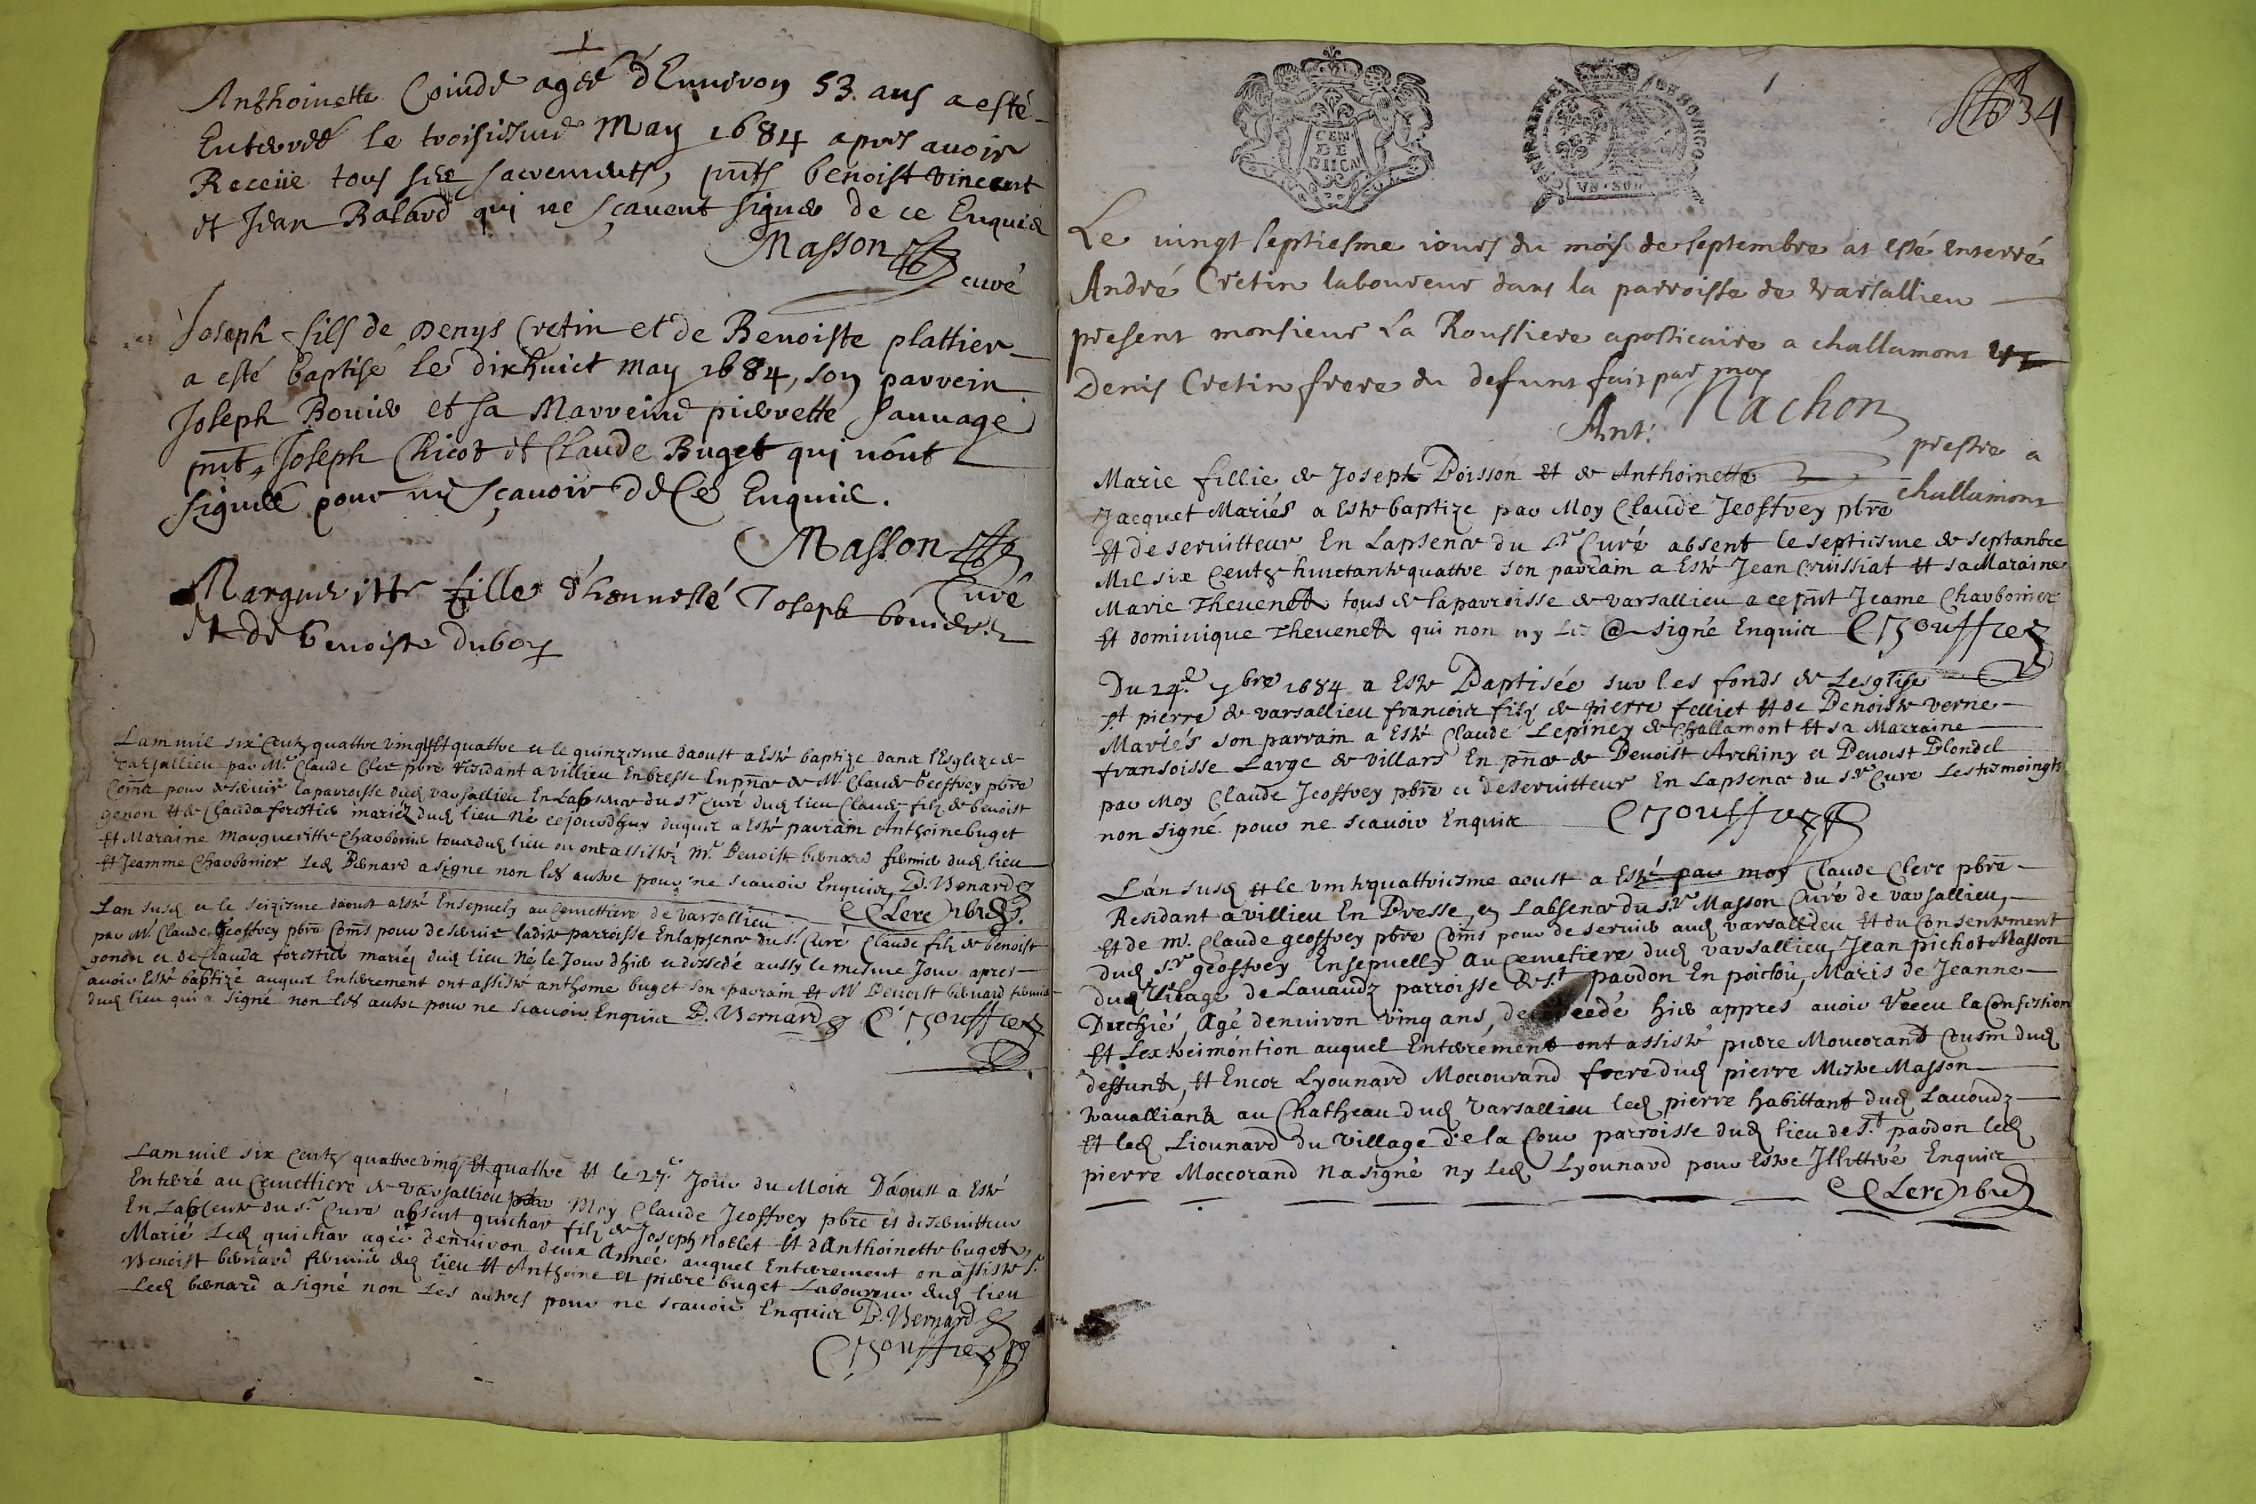 Anthoinette Coinde agée d'Environ 53. ans a esté
Enterrée le troisiesme May 1684 apres avoir
Receüe tous ses sacrements, pnts benoist vincent
et Jean Balard qui ne sçavent signer de ce Enquis
Masson
curé
Joseph fils de Denys Cretin et de Benoiste plattier
a esté baptisé le dixhuict may 1684, son parrein
Joseph Bouier et sa Marreine pierrette sauvage
pnt, Joseph Chicot et Claude Buget qui nont
signée pour ne sçavoir de Ce Enquis.
Masson
Curé
Margueritte fille d'honneste Joseph bouier
et de benoiste duboy
Lam mil six Centz quattre vingtz Et quattre et le quinziesme daoust a Esté baptize dans l'Esglize de
varsallieu par Mr Claude Clerc pbre Residant a villieu En bresse En pnce de Mr Claude Geoffrey pbre
Comis pour deservir la parroisse dud varsallieu En Labsence du sr Curé dud lieu Claude filz de benoist
genon et de Clauda forestier mariéz dud lieu Né cejourdhuy duquel a Esté parrain Anthoine buget
Et Maraine Margueritte Charbonier tous dud lieu ou ont assisté Mr Benoist bernard fermier dud lieu
Et Jeamme Charbonier led Bernard a signe non les autre pour ne scavoir Enquis B. Bernard
C Clerc pbre
Lan susd et le seiziesme daoust a Esté Ensepuely au Cemettiere de varsallieu
par Mr Claude Geoffrey pbre Comis pour deservir ladite parroisse En lapsence du sr Curé Claude filz de benoist
gonon et de Clauda forestier mariéz dud lieu Né le Jour dhier et décedé aussy le mesme Jour apres
avoir Esté baptizé auquel Enterement ont assisté anthoine buget son parrain Et Mr Benoist bernard fermier
dud lieu qui a signé non les autre pour ne scavoir Enquis B. Bernard C Jouffrey
Lam mil six Centz quattre vingt Et quattre Et le 27e Jour du Mois D'aoust a Esté
Enterré au Cemettiere de varsallieu par Moy Claude Jeoffrey pbre et deservitteur
En Labsence du sr Curé absent guichar filz de Joseph nollet Et d'Anthoinette buget
Marié Led guichar agée denviron deux Année auquel Enterement on assisté sr
Benoist bernard fermier dud lieu Et Anthoine et pierre buget Laboureur dud lieu
Led bernard a signé non Les autres pour ne scavoir Enquis B. Bernard
C Jouffrey
CEN
DE
DIICN
GENERALITE DE BOURGO
VN SOL
1
34
Le vingt septiesme iours du mois de septembre at esté enterré
André Cretin laboureur dans la parroisse de varsallieu
present monsieur La Roussiere apoticaire a challamont et
Denis Cretin frere du defunt fait par moy
Ant: Nachon
prestre a
challamont
Marie fillie de Joseph Poisson Et de Anthoinette
Jacquet Mariés a Esté baptize par Moy Claude Jeoffrey pbre
Et deservitteur En Lapsence du sr Curé absent le septiesme de septanbre
Mil six Centz huictante quattre son parrain a Esté Jean Cruissiat Et sa Maraine
Marie Thevenet tous de la parroisse de varsallieu a ce pnt Jeame Charbonier
Et dominique Thevenet qui non ny signé Enquis C Jouffrey
Du 24e 7bre 1684 a Esté Baptisée sur les fonds de Lesglise
st pierre de varsallieu francois filz de pierre felliet Et de Benoiste verne
Mariés son parrain a Esté Claude Lepiney de Challamont Et sa Marraine
fransoisse Large de villars En pnce de Benoist Archiny et Benoist Blondel
par Moy Claude Jeoffrey pbre et deservitteur En Lapsence du sr Cure Les tesmoingtz
non signé pour ne scavoir Enquis C Jouffrey
L'an susd et le vinttquattriesme aoust a Esté par moy Claude Clerc pbre
Residant a villieu En Bresse, en Labsence du sr Masson Curé de varsallieu,
Et de mr. Claude geoffrey pbre Comis pour deservir aud varsallieu Et du Consentement
dud sr geoffrey Ensepuelly au Cemetiere dud varsallieu, Jean pichot Masson
dud vilage de Lavaudz parroisse de st pardon En poictou, Maris de Jeanne
Duchié, Agé denviron vingt ans, decedé hier appres avoir Receu la Confession
Et Lextreimontion auquel Enterement ont assisté pierre Moucorand Cousin dud
deffunct, Et Encor Lyounard Moccourand frere dud pierre Mestre Masson
travalliantz au Chatheau dud varsallieu led pierre habittant dud Lavoudz
Et led Liounard du village de la Cour parroisse dud lieu de st pardon led
pierre Moccorand Na signé ny led Lyounard pour Estre Illitteré Enquis
C Clerc pbre